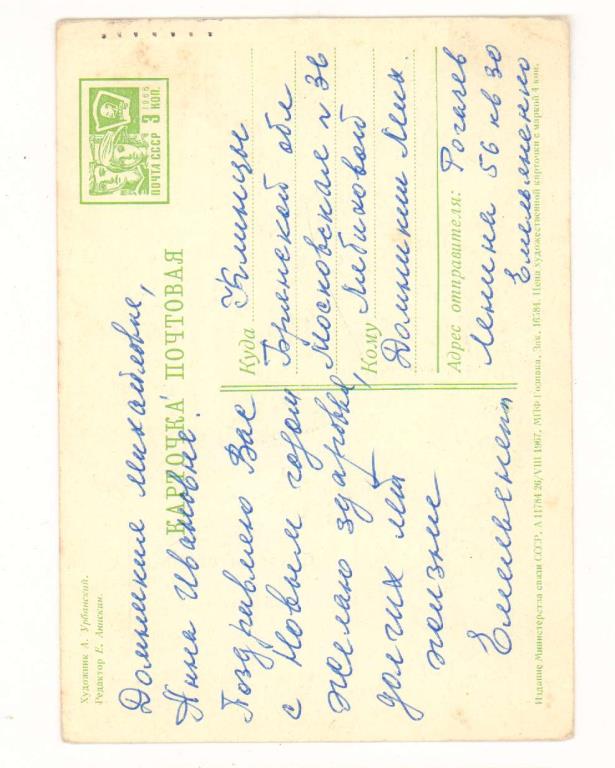 Художник А. Урбанский.
Редактор Е. Анискин.
1966
3 коп.
ПОЧТА СССР
КАРТОЧКА ПОЧТОВАЯ
Домникия михайловне,
Анна Ивановне!
Поздравляю Вас
с Новым годом
желаю здаровья,
долгих лет
жизне
Емельянент
Куда Клинцы
Брянской обл
Московская п 36
Кому Лябиховой
Домникии Мих.
Адрес отправителя: Рогачев
Ленина 56 кв 30
Емельяненко
Издание Министерства связи СССР. А 11784 26/VIII 1967. МПФ Гознака. Зак. 16584. Цена художественной карточки с маркой 4 коп.